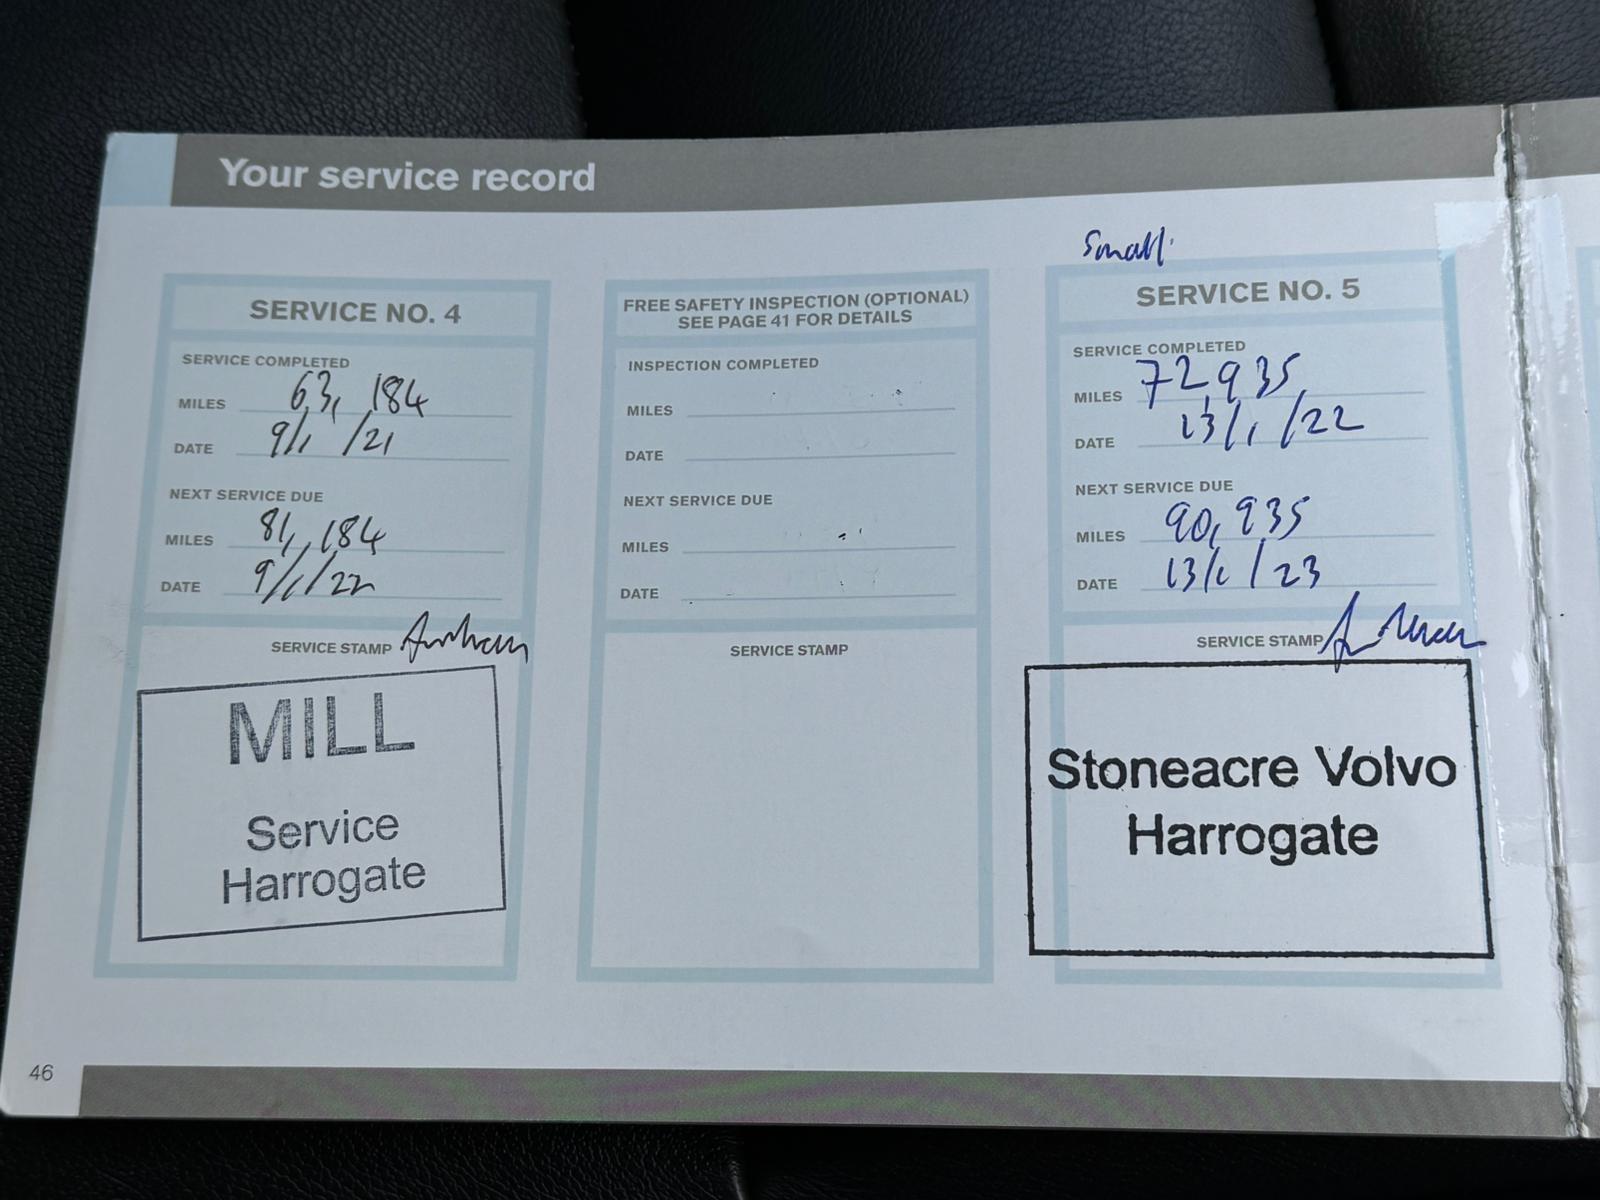 Your service record
SERVICE NO. 4
SERVICE COMPLETED
MILES 63,184
DATE 9/1/21
NEXT SERVICE DUE
MILES 81,184
DATE 9/1/22
SERVICE STAMP
MILL
Service
Harrogate
FREE SAFETY INSPECTION (OPTIONAL)
SEE PAGE 41 FOR DETAILS
INSPECTION COMPLETED
MILES
DATE
NEXT SERVICE DUE
MILES
DATE
SERVICE STAMP
Small
SERVICE NO. 5
SERVICE COMPLETED
MILES 72,935
DATE 13/1/22
NEXT SERVICE DUE
MILES 90,935
DATE 13/1/23
SERVICE STAMP
Stoneacre Volvo
Harrogate
46